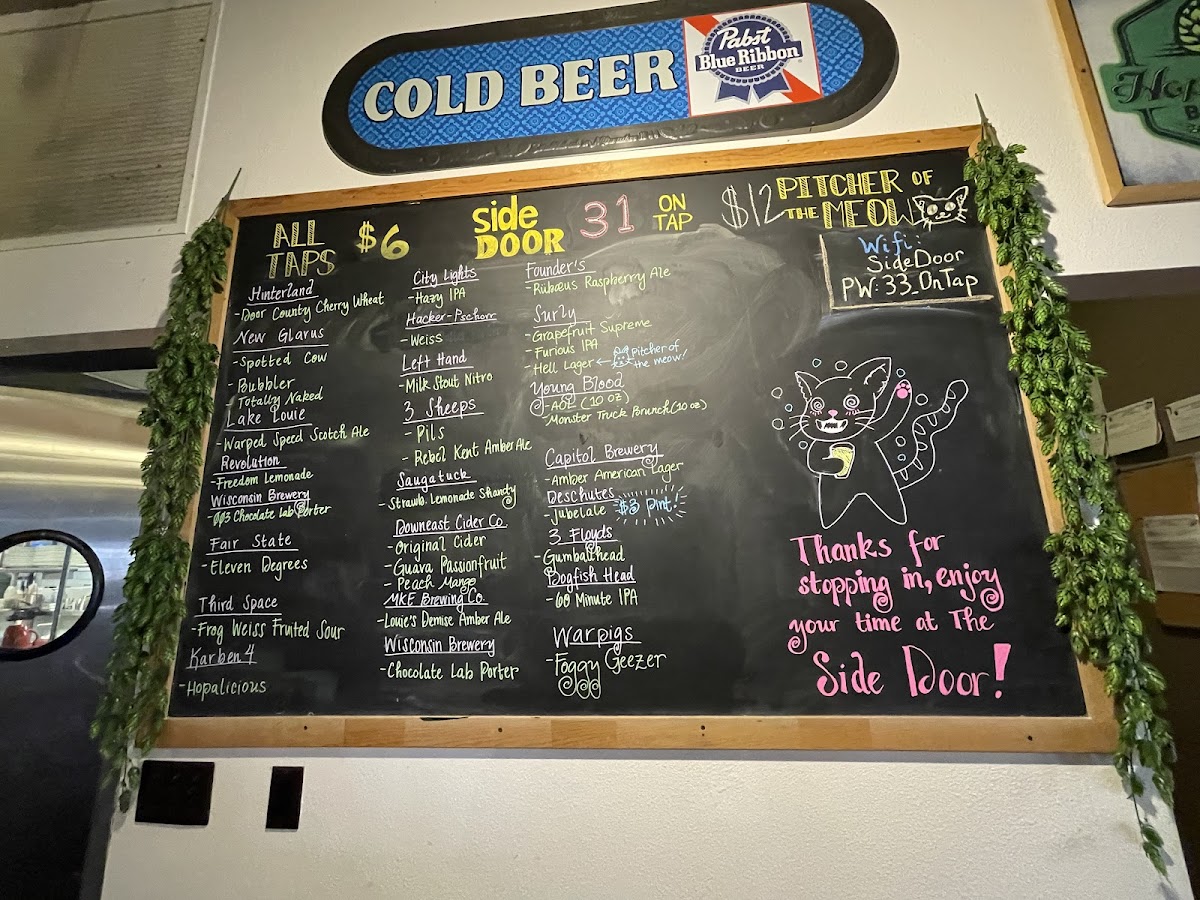 COLD BEER
Pabst
Blue Ribbon
BEER
Hop
ALL
TAPS
$6
Side
DOOR
31
ON
TAP
$12 PITCHER OF
THE MEOW
Wifi:
SideDoor
PW: 33_OnTap
Hinterland
- Door County Cherry Wheat
New Glarus
- Spotted Cow
- Bubbler
- Totally Naked
Lake Louie
- Warped Speed Scotch Ale
Revolution
- Freedom Lemonade
Wisconsin Brewery
- 003 Chocolate Lab Porter
Fair State
- Eleven Degrees
Third Space
- Frog Weiss Fruited Sour
Karben 4
- Hopalicious
City Lights
- Hazy IPA
Hacker-Pschorr
- Weiss
Left Hand
- Milk Stout Nitro
3 Sheeps
- Pils
- Rebel Kent Amber Ale
Saugatuck
- Strawb. Lemonade Shandy
Downeast Cider Co.
- Original Cider
- Guava Passionfruit
- Peach Mango
MKE Brewing Co.
- Louie's Demise Amber Ale
Wisconsin Brewery
- Chocolate Lab Porter
Founder's
- Rübæus Raspberry Ale
Surly
- Grapefruit Supreme
- Furious IPA
- Hell Lager ← pitcher of
the meow!
Young Blood
- AOE (10 oz)
- Monster Truck Brunch (10 oz)
Capitol Brewery
- Amber American Lager
Deschutes
- Jubelale $3 pint!
3 Floyds
- Gumballhead
Dogfish Head
- 60 Minute IPA
Warpigs
- Foggy Geezer
Thanks for
stopping in, enjoy
your time at The
Side Door!